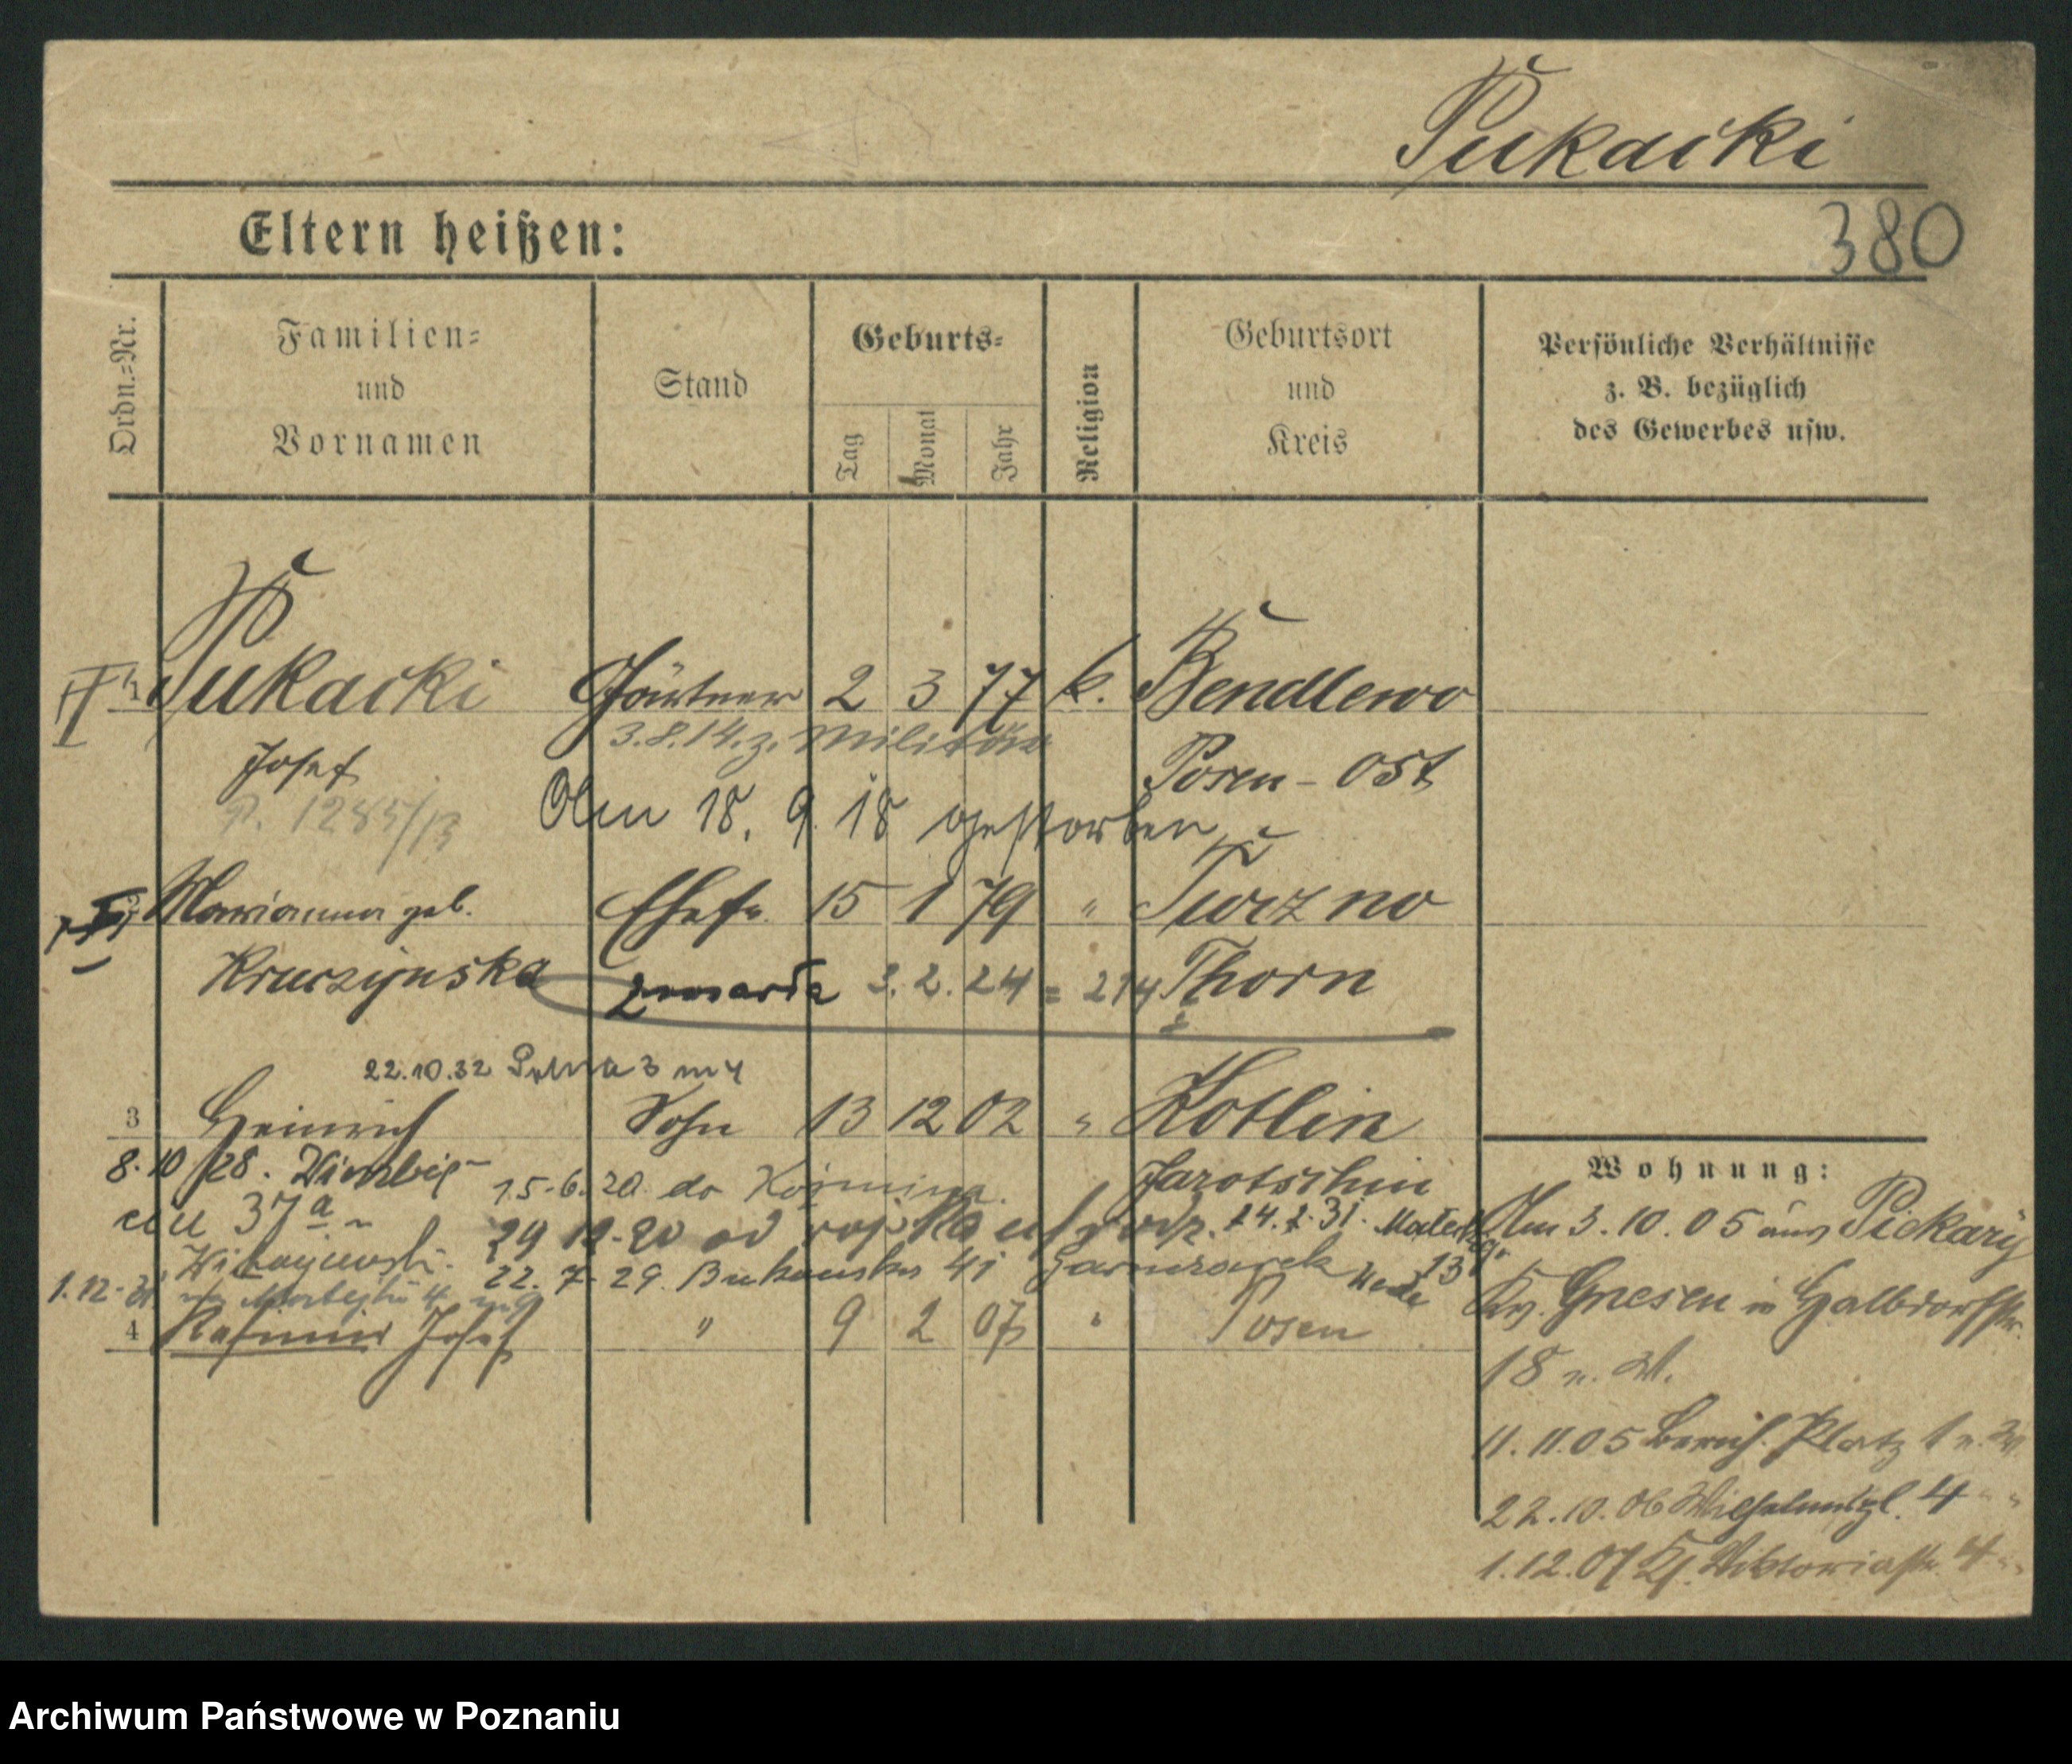 Pukacki
Eltern heißen:
380
Ordn.-Nr.
Familien- und Vornamen
Stand
Geburts-
Tag
Monat
Jahr
Religion
Geburtsort und Kreis
Persönliche Verhältnisse
z. B. bezüglich
des Gewerbes usw.
Pukacki Gärtner 2 3 77 k. Bendlewo
3.8.14. z. Militär
Josef Posen-Ost
Am 18. 9. 18 gestorben
Marianna geb. Ehefr. 15 1 79 " Turzno
Kruszynska zmarła 3.2.24 = 214 Thorn
22.10.32 3 m 4
3 Heinrich Sohn 13 12 02 " Kotlin
8.10/28. Jarotschin
15.6.20 do
37a
24.2.31.
22.7.29. Bukowska 41
13
1.12.31
4 Kasimir Josef " 9 2 07 " Posen
Wohnung:
Am 3.10.05 aus Piekary
Kr. Gnesen in Halbdorfstr.
18 n. W.
11.11.05 Bernh. Platz 1 n. W.
22.10.06 Wilhelmspl. 4 " "
1.12.07 Viktoriastr. 4 " "
Archiwum Państwowe w Poznaniu